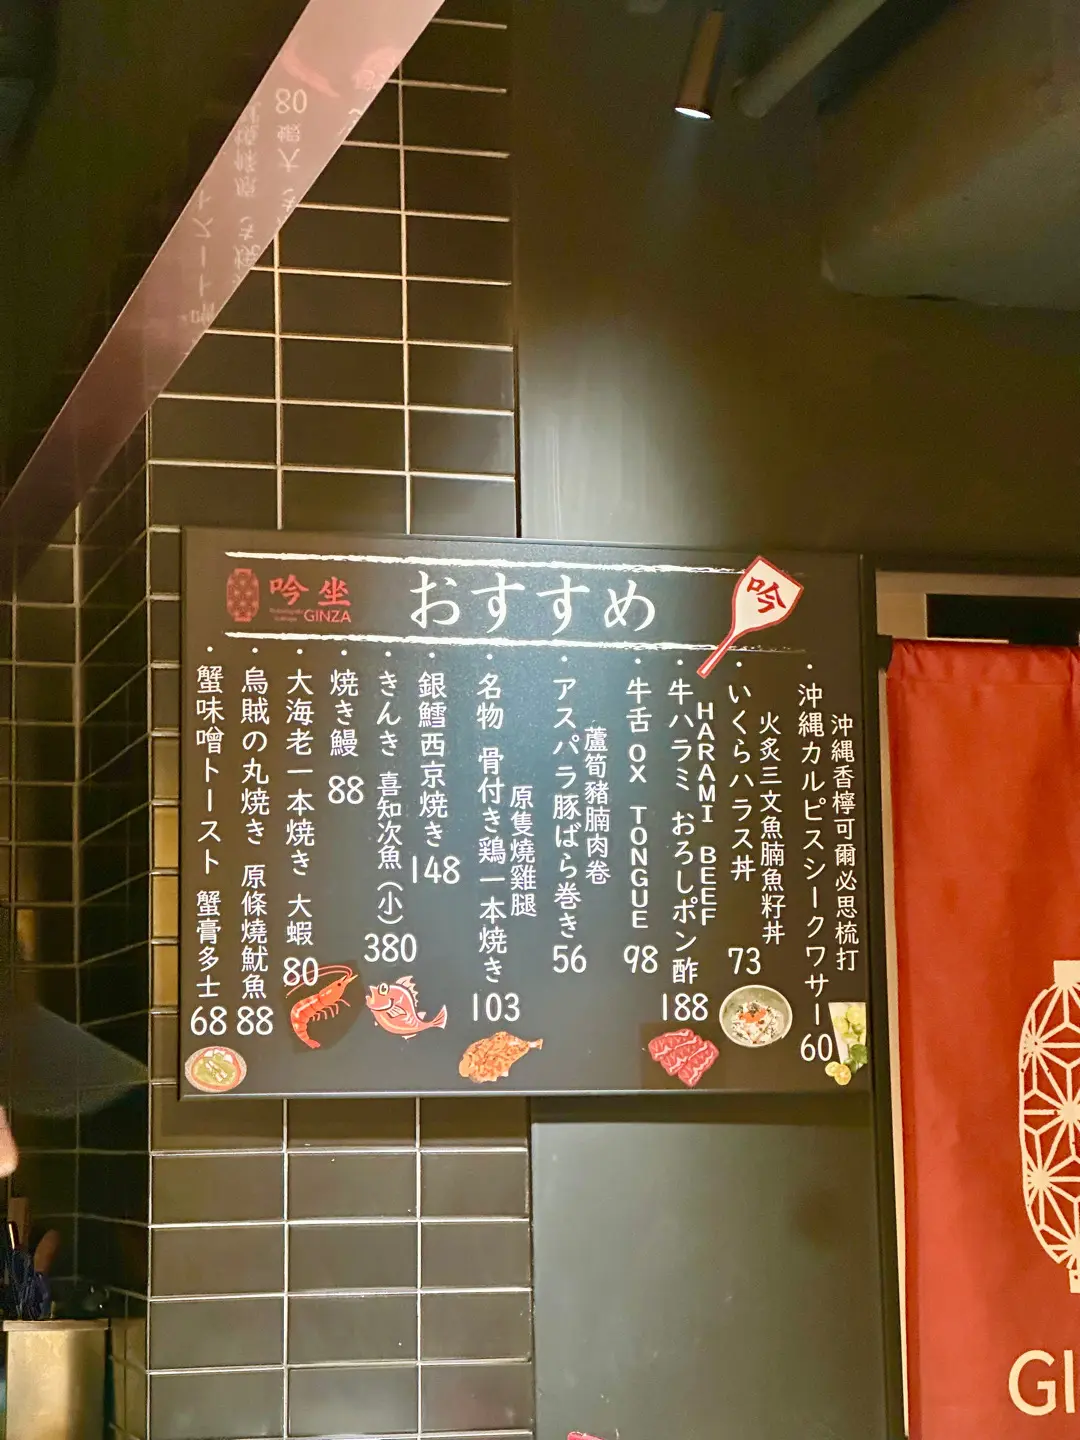 吟坐
GINZA
おすすめ
吟
沖縄香檸可爾必思梳打
沖縄カルピスシークワサー
60
いくらハラス丼
火炙三文魚腩魚籽丼
73
牛ハラミ おろしポン酢
HARAMI BEEF
188
牛舌 OX TONGUE
98
アスパラ豚ばら巻き
蘆筍豬腩肉卷
56
名物 骨付き鶏一本焼き
原隻燒雞腿
103
銀鱈西京焼き
148
きんき 喜知次魚(小)
380
焼き鰻
88
大海老一本焼き 大蝦
80
烏賊の丸焼き 原條燒魷魚
88
蟹味噌トースト 蟹膏多士
68